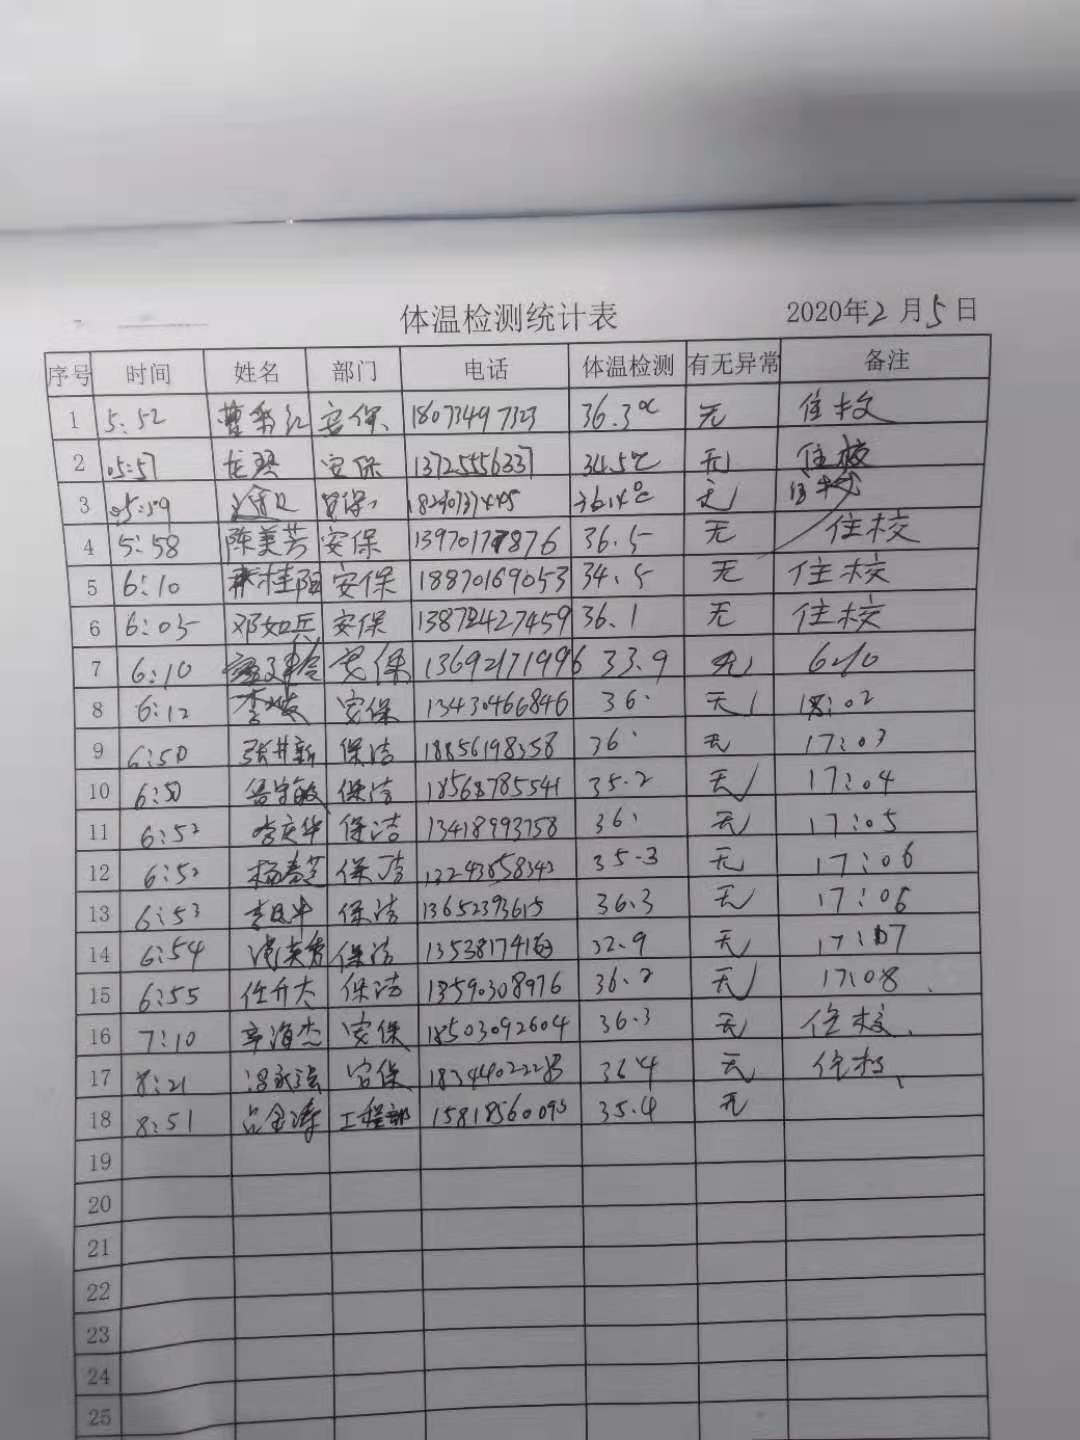 体温检测统计表 2020年2月5日
序号 时间 姓名 部门 电话 体温检测 有无异常 备注
1 5:52 安保 18073497323 36.3℃ 无 住校
2 05:57 龙 安保 13725556337 34.5℃ 无 住校
3 05:59 安保 18240737445 36.4℃ 无
4 5:58 陈美芳 安保 13970177876 36.5 无 住校
5 6:10 桂阳 安保 18870169053 34.5 无 住校
6 6:05 邓如兵 安保 13872427459 36.1 无 住校
7 6:10 安保 13692171996 33.9 无
8 6:12 李 安保 13430466846 36. 无 18:02
9 6:50 张井新 保洁 18856198358 36. 无 17:03
10 6:50 敏 保洁 18568785541 35.2 无 17:04
11 6:52 李庆华 保洁 13418993758 36. 无 17:05
12 6:52 杨春芝 保洁 13243858342 35.3 无 17:06
13 6:53 李 保洁 13652393615 36.3 无 17:06
14 6:54 保洁 32.9 无 17:07
15 6:55 任升大 保洁 13590308976 36.2 无 17:08
16 7:10 辛海杰 安保 18503092604 36.3 无 住校
17 8:21 安保 36.4 无 住校
18 8:51 占金涛 工程部 15818560093 35.4 无
19
20
21
22
23
24
25